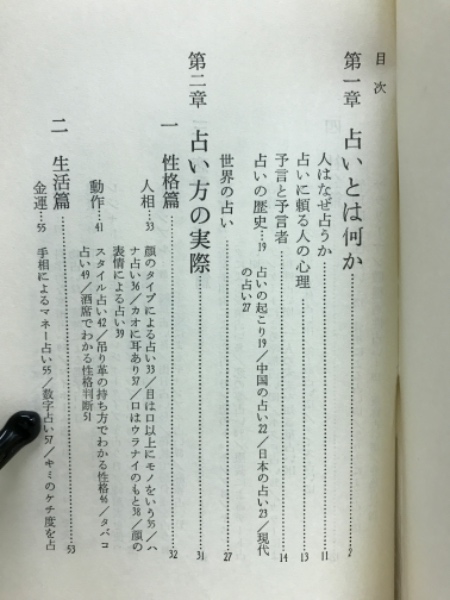 目次
第一章 占いとは何か……2
人はなぜ占うか……11
占いに頼る人の心理……13
予言と予言者……14
占いの歴史…19 占いの起こり19／中国の占い22／日本の占い23／現代
の占い27
世界の占い……27
第二章 占い方の実際……31
一 性格篇……32
人相…33 顔のタイプによる占い33／目は口以上にモノをいう35／ハ
ナ占い36／カオに耳あり37／口はウラナイのもと38／顔の
表情による占い39
動作…41 スタイル占い42／吊り革の持ち方でわかる性格46／タバコ
占い49／酒席でわかる性格判断51
二 生活篇……53
金運…55 手相によるマネー占い55／数字占い57／キミのケチ度を占